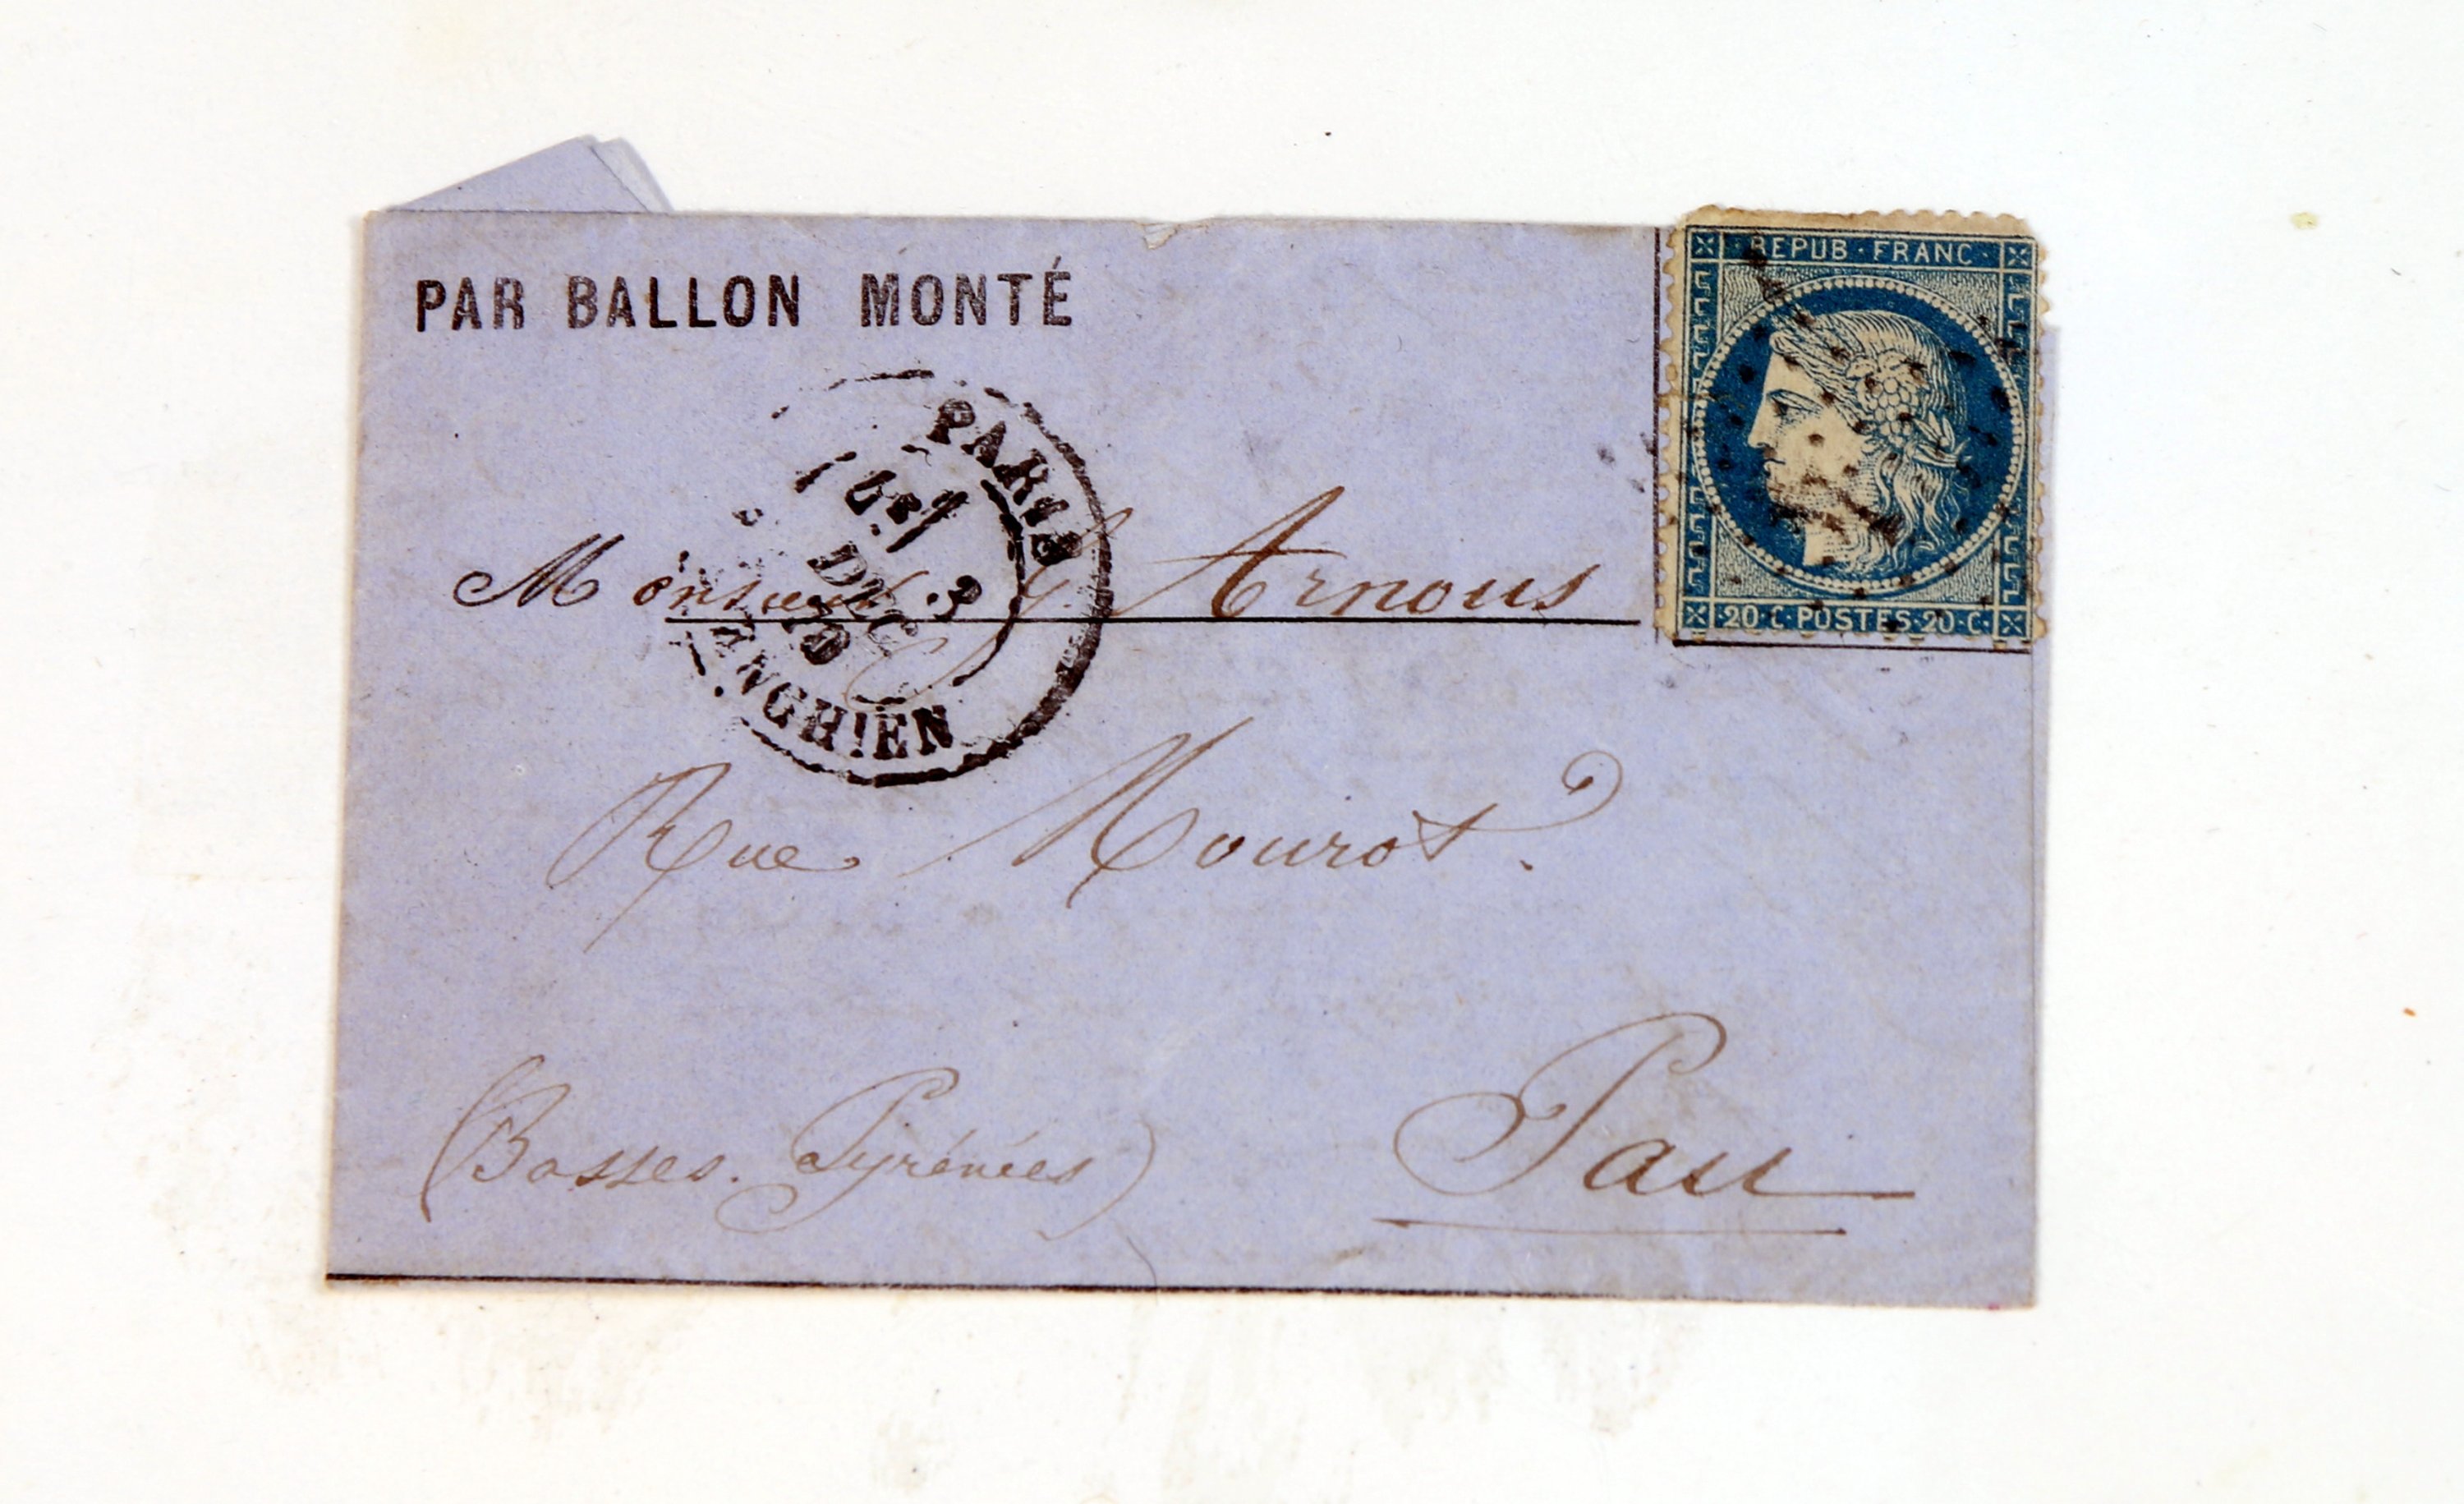 PAR BALLON MONTÉ
REPUB·FRANC·
20·C·POSTES·20·C·
PARIS
DEC
70
ENGHIEN
Monsieur G. Arnous
Rue Mourot.
(Basses. Pyrénées)
Pau